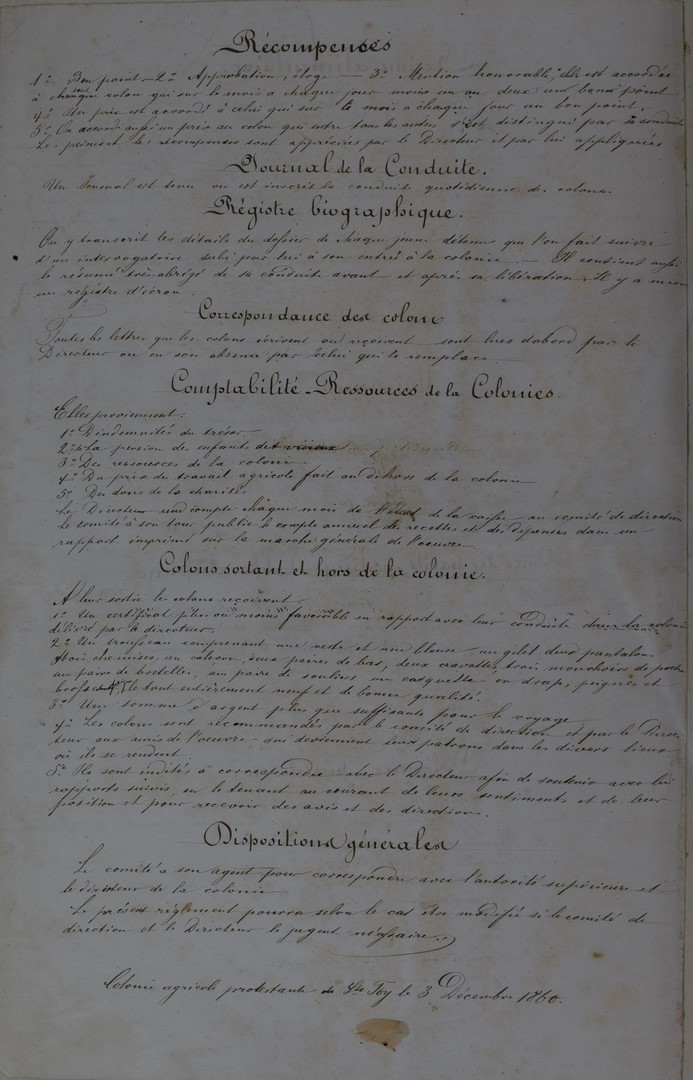 Récompenses
1º Bon point — 2º Approbation, éloge — 3º Mention honorable, elle est accordée
à chaque colon qui sur le mois a chaque jour moins un ou deux un bon point
4º Un prix est accordé à celui qui sur le mois a chaque jour un bon point.
5º On accorde aussi un prix au colon qui entre tous les autres s'est distingué par sa conduite
Les peines et les récompenses sont appréciées par le Directeur et par lui appliquées
Journal de la Conduite.
Un Journal est tenu où est inscrit la conduite quotidienne des colons.
Régistre biographique.
On y transcrit les détails du dossier de chaque jeune détenu que l'on fait suivre
d'un interrogatoire subi par lui à son entrée à la colonie. — Il contient aussi
le résumé très abrégé de sa conduite avant et après sa libération. Il y a
un registre d'écrou.
Correspondance des colons
Toutes les lettres que les colons écrivent ou reçoivent sont lues d'abord par le
Directeur ou en son absence par celui qui le remplace.
Comptabilité - Ressources de la Colonies.
Elles proviennent :
1º D'indemnités du trésor
2º La pension des enfants
3º Des ressources de la colonie
4º Du prix du travail agricole fait au dehors de la colonie
5º Des dons de la charité
Le Directeur rend compte chaque mois de l'état de la caisse au comité de direction
le comité à son tour publie le compte annuel de recettes et de dépenses dans un
rapport imprimé sur la marche générale de l'oeuvre
Colons sortant et hors de la colonie.
A leur sortie les colons reçoivent :
1º Un certificat plus ou moins favorable en rapport avec leur conduite dans la colonie
délivré par le directeur.
2º Un trousseau comprenant une veste et une blouse un gilet deux pantalons
trois chemises, un caleçon, deux paires de bas, deux cravattes, trois mouchoirs de poche
une paire de bretelles, une paire de souliers une casquette en drap, peignes et
brosses le tout entièrement neuf et de bonne qualité.
3º Une somme d'argent plus que suffisante pour le voyage
4º Les colons sont recommandés par le comité de direction et par le Direc-
teur aux amis de l'oeuvre qui deviennent leurs patrons dans les divers lieux
où ils se rendent.
5º Ils sont invités à correspondre avec le Directeur afin de soutenir avec lui
rapports suivis, en le tenant au courant de leurs sentiments et de leur
position et pour recevoir des avis et des directions.
Dispositions générales
Le comité a son agent pour correspondre avec l'autorité supérieure et
le directeur de la colonie
Le présent règlement pourra selon le cas être modifié si le comité de
direction et le Directeur le jugent nécessaire.
Colonie agricole protestante de Ste Foy le 3 Décembre 1860.